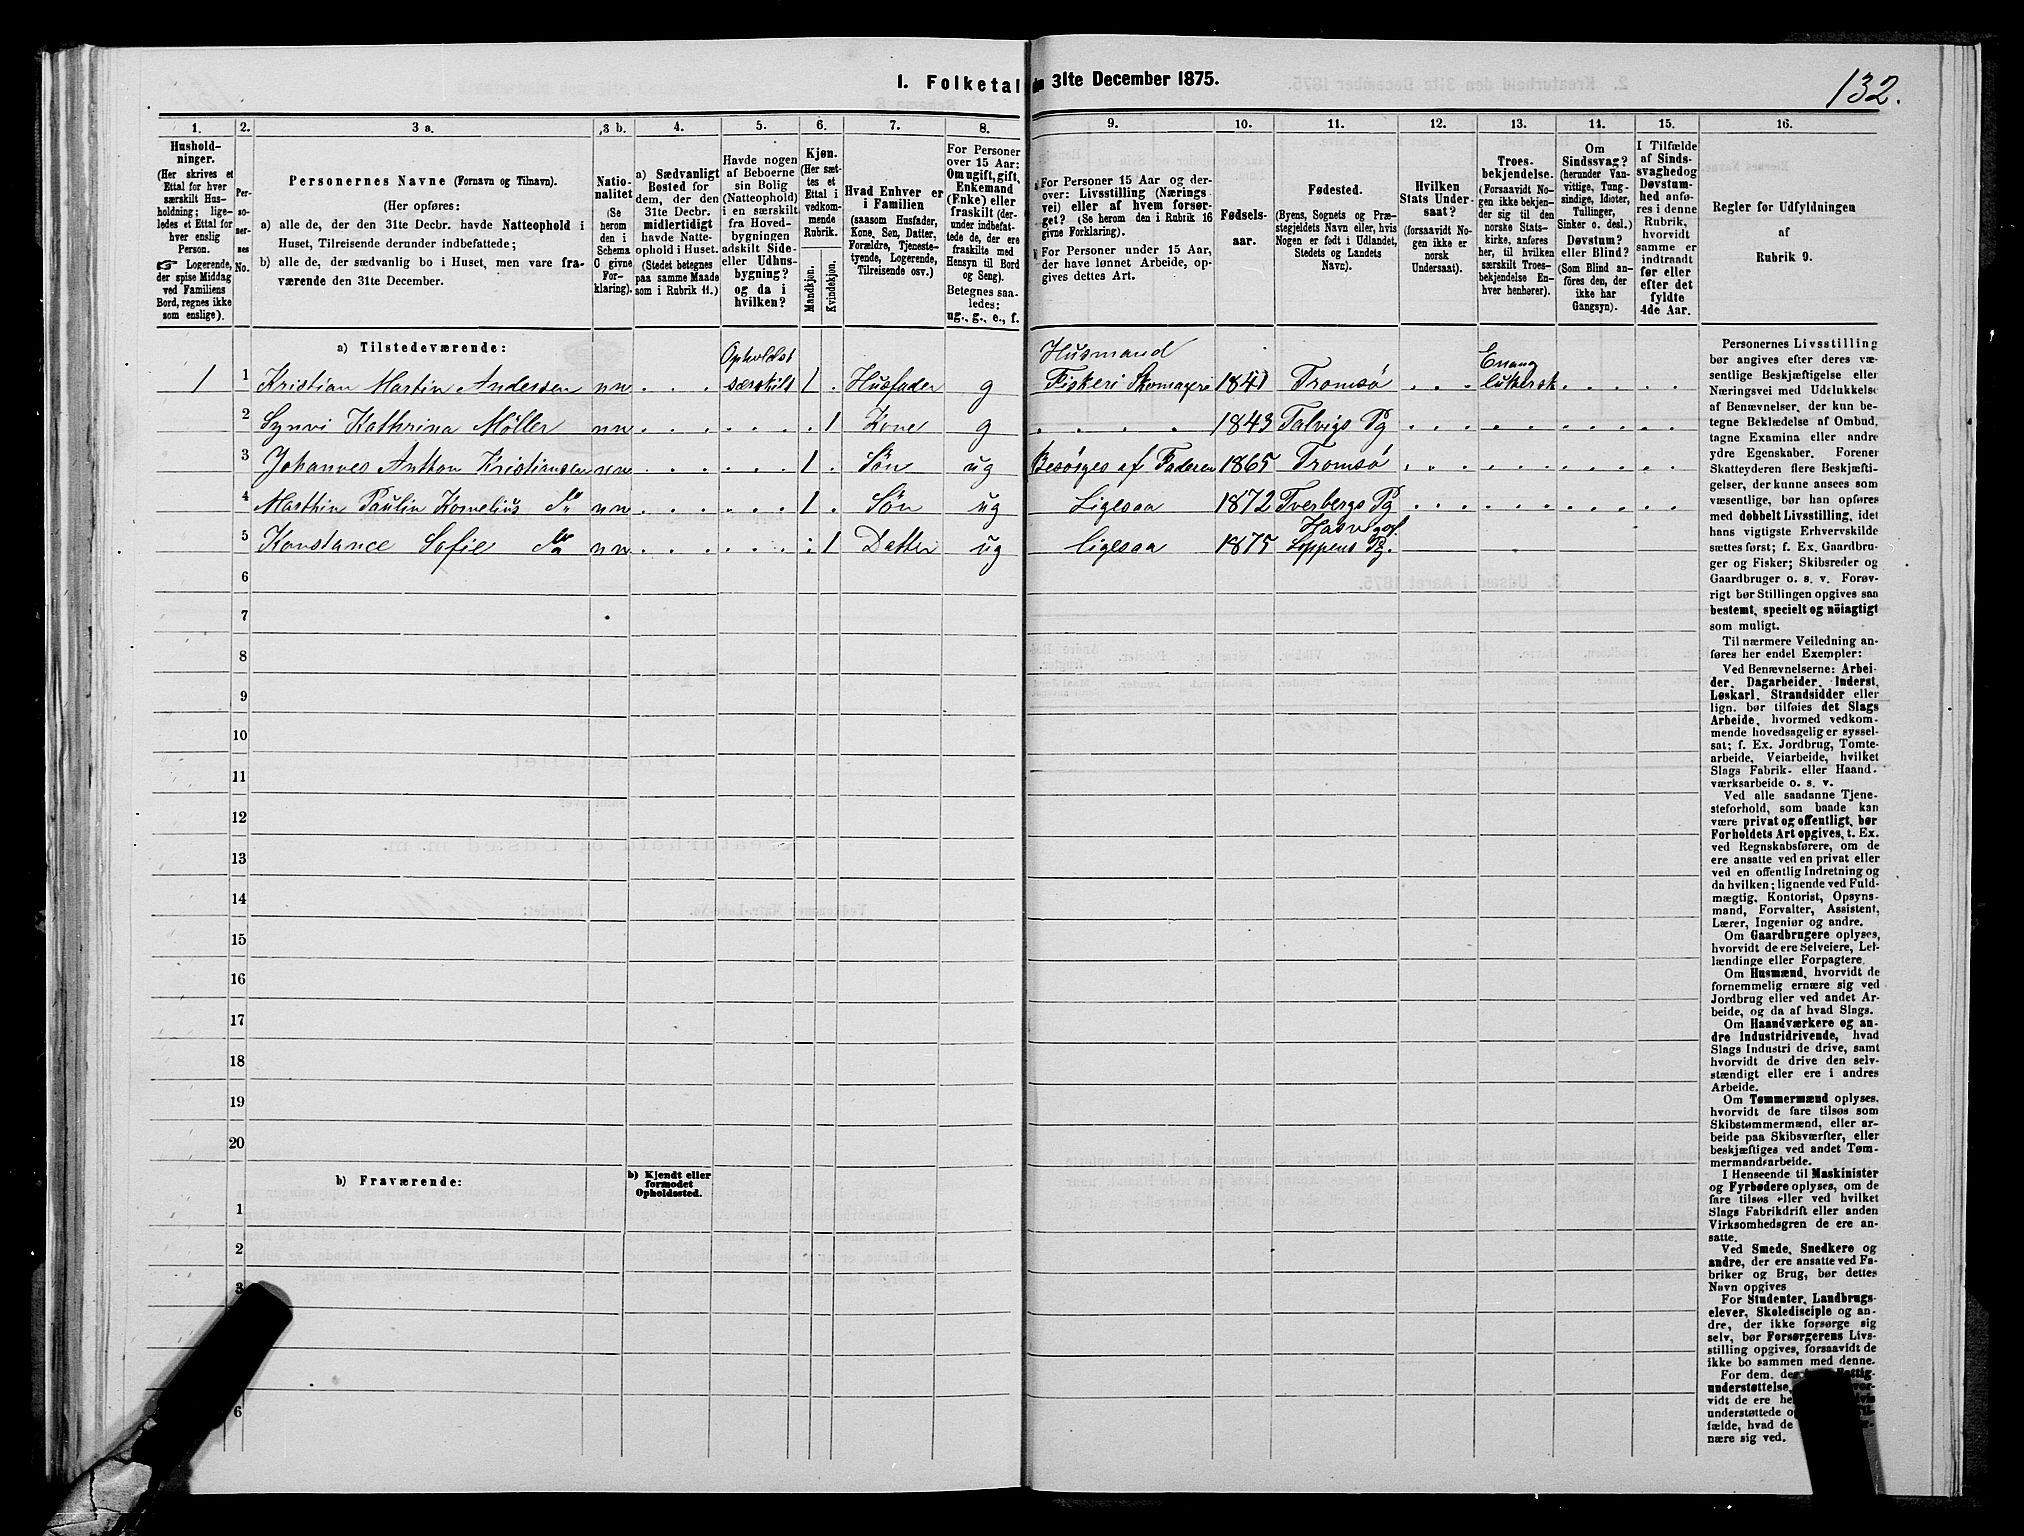 I. Folketal den 31te December 1875.
132.
1.
2.
3 a.
3 b.
4.
5.
6.
7.
8.
9.
10.
11.
12.
13.
14.
15.
16.
Hushold-
ninger.
(Her skrives et
Ettal for hver
særskilt Hus-
holdning; lige-
ledes et Ettal
for hver
enslig
Person.
☞ Logerende,
der spise Middag
ved Familiens
Bord, regnes ikke
som enslige).
Per-
so-
ner-
nes
No.
Personernes Navne (Fornavn og Tilnavn).
(Her opføres:
a) alle de, der den 31te Decbr. havde Natteophold i
Huset, Tilreisende derunder indbefattede;
b) alle de, der sædvanlig bo i Huset, men vare fra-
værende den 31te December.
Natio-
nalitet
(Se
herom
den i
Schema
C givne
For-
klaring).
a) Sædvanligt
Bosted for
dem, der den
31te Decbr.
midlertidigt
havde Natte-
ophold i Huset.
(Stedet betegnes
paa samme Maade
som i Rubrik 11.)
Havde nogen
af Beboerne
sin Bolig
(Natteophold)
i en særskilt
fra Hoved-
bygningen
adskilt Side-
eller Udhus-
bygning?
og da i
hvilken?
Kjøn.
(Her sæt-
tes et
Ettal i
vedkom-
mende
Rubrik.
Mandkjøn.
Kvindekjøn.
Hvad Enhver er
i Familien
(saasom Husfader,
Kone, Søn, Datter,
Forældre, Tjeneste-
tyende, Logerende,
Tilreisende osv.)
For Personer
over 15 Aar:
Om ugift, gift,
Enkemand
(Enke) eller
fraskilt (der-
under indbefat-
tede de, der ere
fraskilte med
Hensyn til Bord
og Seng).
Betegnes saa-
ledes:
ug., g., e., f.
a For Personer 15 Aar og der-
over: Livsstilling (Nærings-
vei) eller af hvem forsør-
get? (Se herom den i Rubrik 16
givne Forklaring).
b For Personer under 15 Aar,
der have lønnet Arbeide, op-
gives dettes Art.
Fødsels-
aar.
Fødested.
(Byens, Sognets og Præ-
stegjeldets Navn eller, hvis
Nogen er født i Udlandet,
Stedets og Landets
Navn).
Hvilken
Stats Under-
saat?
(forsaavidt No-
gen ikke er
norsk
Undersaat).
Troes-
bekjendelse.
(Forsaavidt No-
gen ikke bekjen-
der sig til den
norske Stats-
kirke, anføres
her, til hvilken
særskilt Troes-
bekjendelse En-
hver henhører).
Om
Sindssvag?
(herunder Van-
vittige, Tung-
sindige, Idioter,
Tullinger,
Sinker o. desl.)
Døvstum?
eller Blind?
(Som Blind an-
føres den, der
ikke har
Gangsyn).
I Tilfælde
af Sinds-
svaghed og
Døvstum-
hed anfø-
res i denne
Rubrik,
hvorvidt
samme er
indtraadt
før eller
efter det
fyldte
4de Aar.
Regler for Udfyldningen
af
Rubrik 9.
a) Tilstedeværende:
1 1 Kristian Martin Andersen nn . . . Opholdst særskilt 1 . Husfader g Husmand Fiskeri Skomageri 1841 Tromsø . . . Evang luthersk . . . .
2 Synvi Kathrina Møller nn . . . . . . . 1 Kone g . . . . . 1843 Talvigs Pg . . . . . . . . . .
3 Johannes Antton Kristiansen nn . . . . . . 1 . Søn ug Besørges af Faderen 1865 Tromsø . . . . . . . . . .
4 Marthin Paulin Kornelius do nn . . . . . . 1 . Søn ug Ligesaa 1872 Tverbergs Pg . . . . . . . . . .
5 Konstance Sofie do nn . . . . . . . 1 Datter ug Ligesaa 1875 Hasvig Loppens Pg.
6
7
8
9
10
11
12
13
14
15
16
17
18
19
20
b) Fraværende:
b) Kjendt eller
formodet
Opholdssted.
1
2
3
6
Personernes Livsstilling
bør angives efter deres væ-
sentlige Beskjæftigelse eller
Næringsvei med Udelukkelse
af Benævnelser, der kun be-
tegne Beklædelse af Ombud,
tagne Examina eller andre
ydre Egenskaber. Forener
Skatteyderen flere Beskjæfti-
gelser, der kunne ansees som
væsentlige, bør han opføres
med dobbelt Livsstilling, idet
hans vigtigste Erhvervskilde
sættes først; f. Ex. Gaardbru-
ger og Fisker; Skibsreder og
Gaardbruger o. s. v. Forøv-
rigt bør Stillingen opgives saa
bestemt, specielt og nøiagtigt
som muligt.
Til nærmere Veiledning an-
føres her endel Exempler:
Ved Benævnelserne: Arbei-
der, Dagarbeider, Inderst,
Løskarl, Strandsidder eller
lign. bør tilføies det Slags
Arbeide, hvormed vedkom-
mende hovedsagelig er syssel-
sat; f. Ex. Jordbrug, Tomte-
arbeide, Veiarbeide, hvilket
Slags Fabrik- eller Haand-
værksarbeide o. s. v.
Ved alle saadanne Tjene-
steforhold, som baade kan
være privat og offentligt, bør
Forholdets Art opgives, t. Ex.
ved Regnskabsførere, om de
ere ansatte ved en privat eller
ved en offentlig Indretning og
da hvilken; lignende ved Fuld-
mægtig, Kontorist, Opsyns-
mand, Forvalter, Assistent,
Lærer, Ingeniør og andre.
Om Gaardbrugere oplyses,
hvorvidt de ere Selveiere, Lei-
lændinge eller Forpagtere.
Om Husmænd, hvorvidt de
fornemmelig ernære sig ved
Jordbrug eller ved andet Ar-
beide, og da af hvad Slags.
Om Haandværkere og an-
dre Industridrivende, hvad
Slags Industri de drive, samt
hvorvidt de drive den selv-
stændigt eller ere i andres
Arbeide.
Om Tømmermænd oplyses,
hvorvidt de fare tilsøs som
Skibstømmermænd, eller ar-
beide paa Skibsværfter, eller
beskjæftiges ved andet Tøm-
mermandsarbeide.
I Henseende til Maskinister
og Fyrbødere oplyses, om de
fare tilsøs eller ved hvilket
Slags Fabrikdrift eller anden
Virksomhedsgren de ere an-
satte.
Ved Smede, Snedkere og
andre, der ere ansatte ved Fa-
briker og Brug, bør dettes
Navn opgives
For Studenter, Landbrugs-
elever, Skoledisciple og an-
dre, der ikke forsørge sig
selv, bør Forsørgerens Livs-
stilling opgives, forsaavidt de
ikke bo sammen med denne.
For dem, de Fattig-
understøttelse,
vidt de ere
understøttede
fælde, hvad de
nære sig ved.